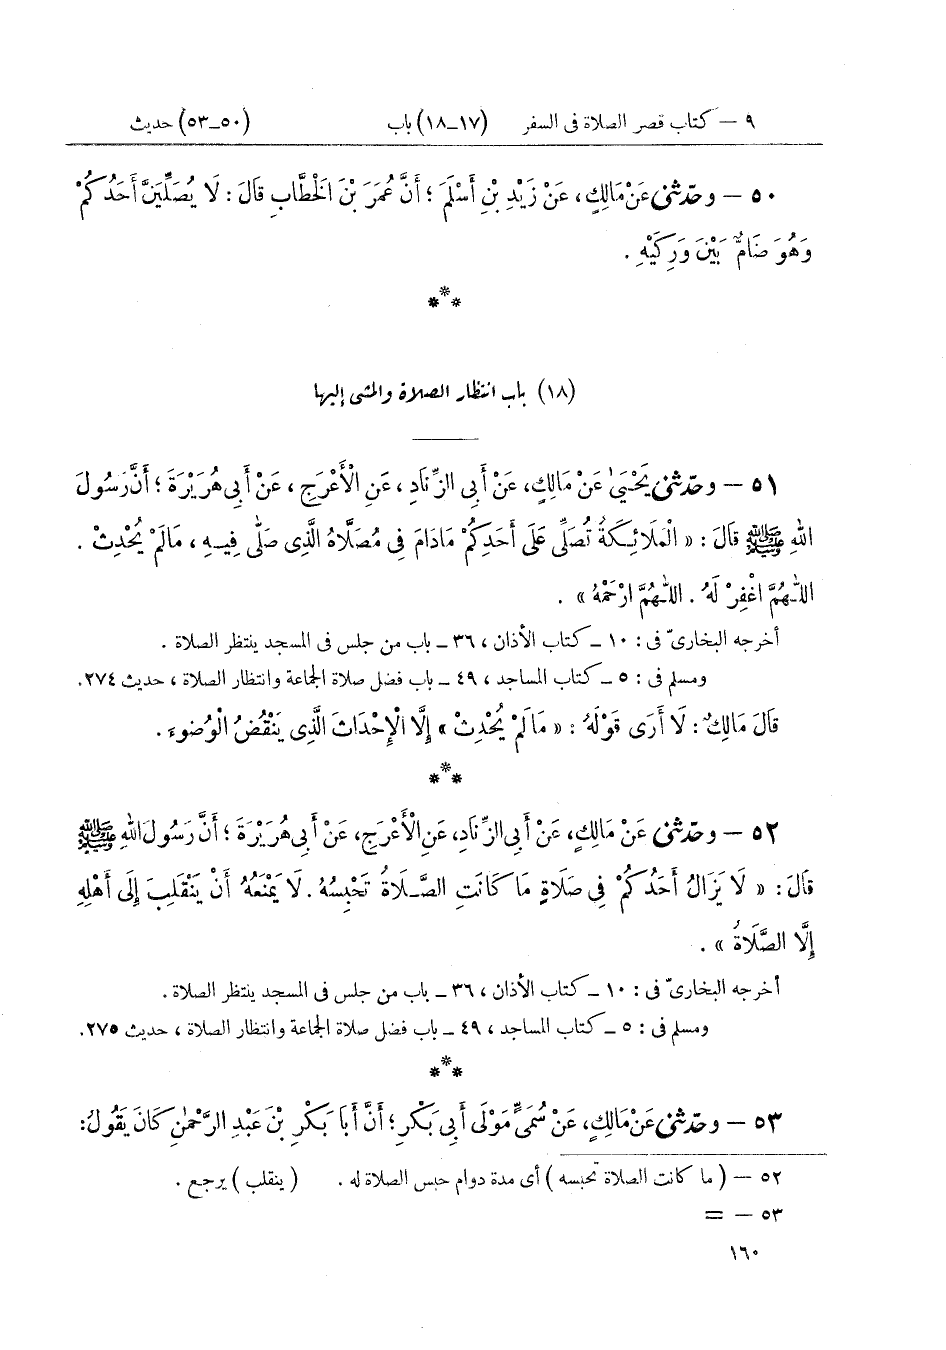 ٩ — كتاب قصر الصلاة فى السفر (١٧ـ١٨) باب (٥٠ـ٥٣) حديث
٥٠ — وحدّثنى عَنْ مَالِكٍ، عَنْ زَيْدِ بْنِ أَسْلَمَ ؛ أَنَّ عُمَرَ بْنَ الْخَطَّابِ قَالَ : لَا يُصَلِّيَنَّ أَحَدُكُمْ
وَهُوَ ضَامٌّ بَيْنَ وَرِكَيْهِ .
***
(١٨) باب انتظار الصلاة والمشى إليها
٥١ — وحدّثنى يَحْيَىٰ عَنْ مَالِكٍ، عَنْ أَبِى الزِّنَادِ ، عَنِ الْأَعْرَجِ ، عَنْ أَبِى هُرَيْرَةَ ؛ أَنَّ رَسُولَ
اللهِ ﷺ قَالَ : « الْمَلَائِكَةُ تُصَلِّى عَلَى أَحَدِكُمْ مَادَامَ فِى مُصَلَّاهُ الَّذِى صَلَّى فِيهِ ، مَالَمْ يُحْدِثْ .
اللّٰهُمَّ اغْفِرْ لَهُ . اللّٰهُمَّ ارْحَمْهُ » .
أخرجه البخارىّ فى : ١٠ ـ كتاب الأذان ، ٣٦ ـ باب من جلس فى المسجد ينتظر الصلاة .
ومسلم فى : ٥ ـ كتاب المساجد ، ٤٩ ـ باب فضل صلاة الجماعة وانتظار الصلاة ، حديث ٢٧٤.
قَالَ مَالِكٌ : لَا أَرَى قَوْلَهُ : « مَالَمْ يُحْدِثْ » إِلَّا الْإِحْدَاثَ الَّذِى يَنْقُضُ الْوُضُوءَ .
***
٥٢ — وحدّثنى عَنْ مَالِكٍ، عَنْ أَبِى الزِّنَادِ، عَنِ الْأَعْرَجِ، عَنْ أَبِى هُرَيْرَةَ ؛ أَنَّ رَسُولَ اللهِ ﷺ
قَالَ : « لَا يَزَالُ أَحَدُكُمْ فِى صَلَاةٍ مَا كَانَتِ الصَّلَاةُ تَحْبِسُهُ . لَا يَمْنَعُهُ أَنْ يَنْقَلِبَ إِلَى أَهْلِهِ
إِلَّا الصَّلَاةُ » .
أخرجه البخارىّ فى : ١٠ ـ كتاب الأذان ، ٣٦ ـ باب من جلس فى المسجد ينتظر الصلاة .
ومسلم فى : ٥ ـ كتاب المساجد ، ٤٩ ـ باب فضل صلاة الجماعة وانتظار الصلاة ، حديث ٢٧٥.
***
٥٣ — وحدّثنى عَنْ مَالِكٍ، عَنْ سُمَىٍّ مَوْلَى أَبِى بَكْرٍ ؛ أَنَّ أَبَا بَكْرِ بْنَ عَبْدِ الرَّحْمٰنِ كَانَ يَقُولُ:
٥٢ — ( ما كانت الصلاة تحبسه ) أى مدة دوام حبس الصلاة له . ( ينقلب ) يرجع .
٥٣ — =
١٦٠